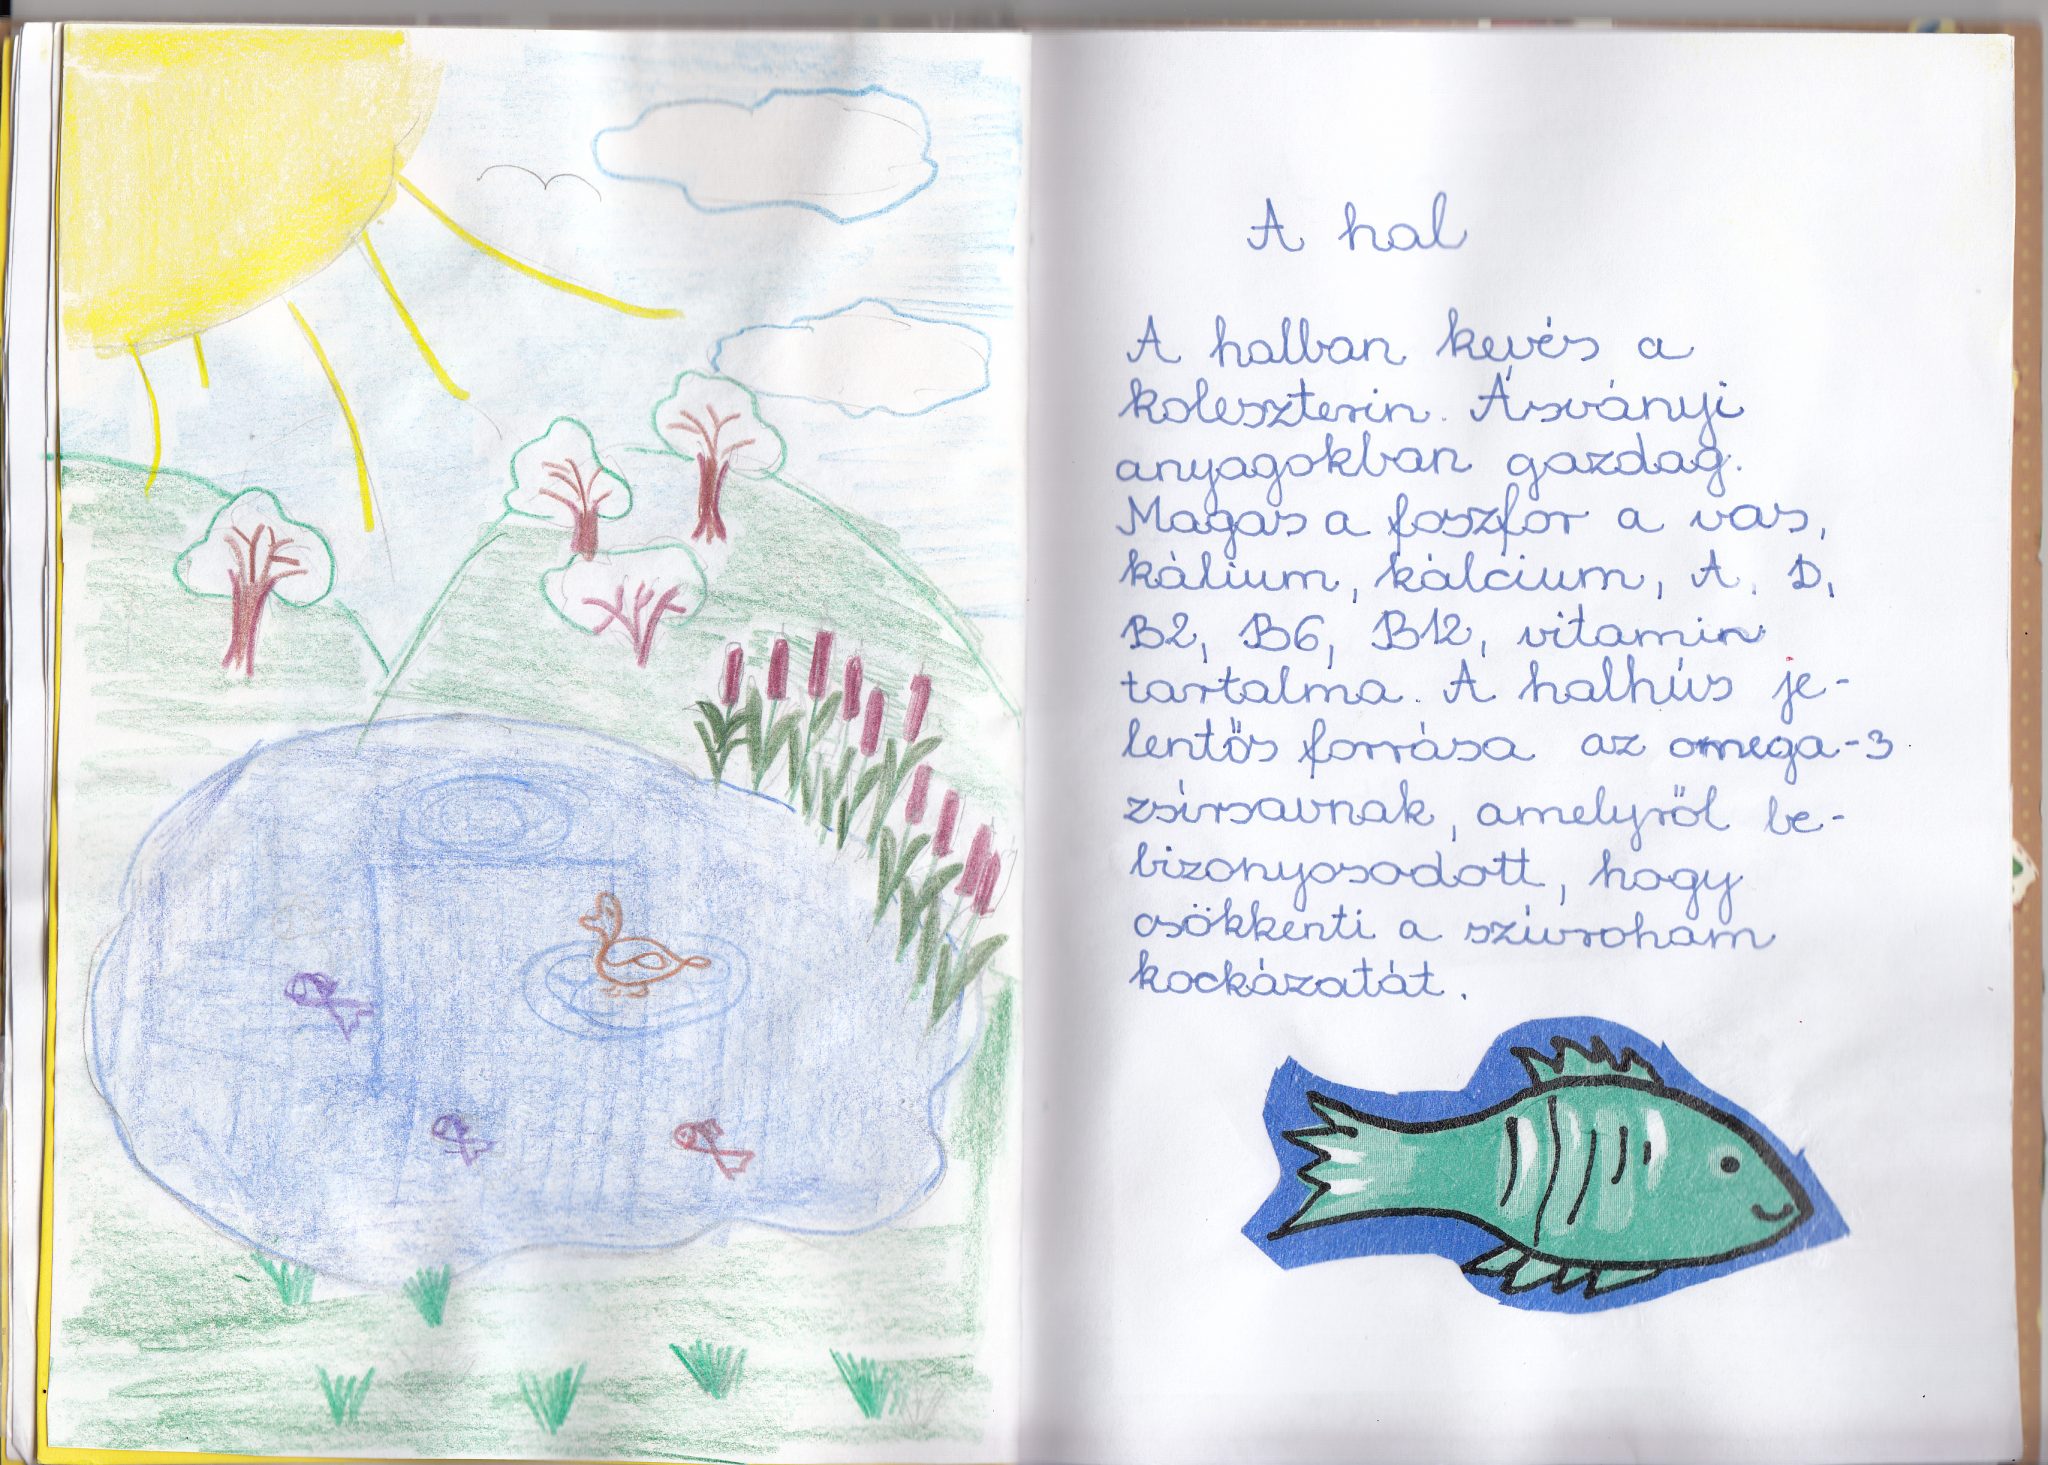 A hal
A halban kevés a
koleszterin. Ásványi
anyagokban gazdag.
Magas a foszfor a vas,
kálium, kálcium, A, D,
B2, B6, B12, vitamin
tartalma. A halhús je-
lentős forrása az omega-3
zsírsavnak, amelyről be-
bizonyosodott, hogy
csökkenti a szívroham
kockázatát.